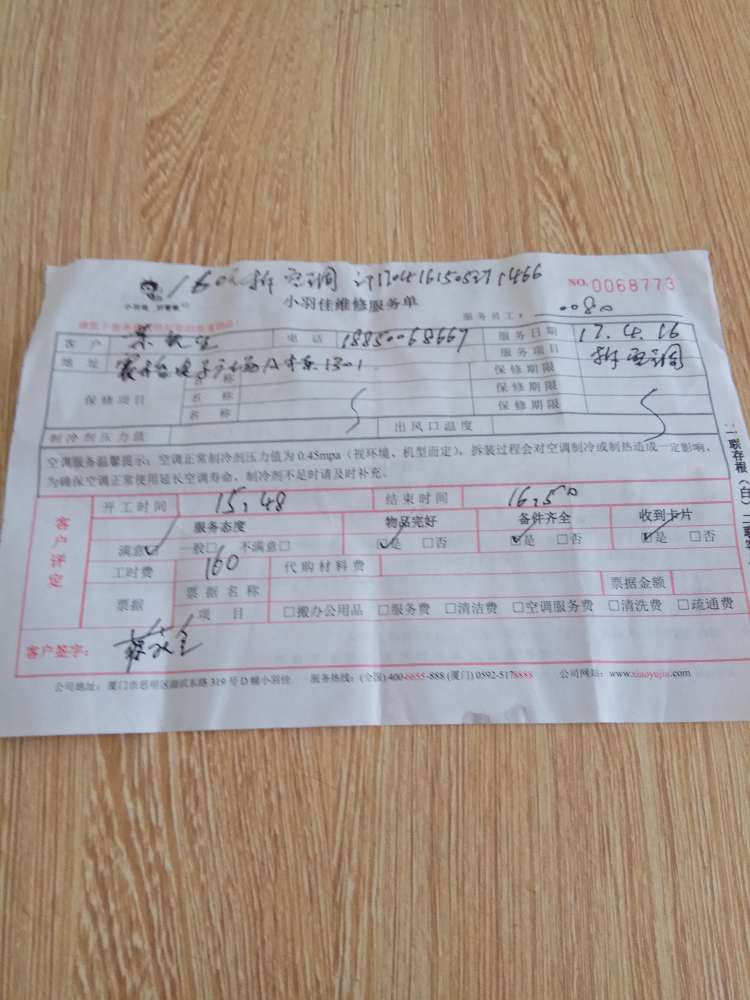 160元拆空调 订1704161505271466
小羽佳维修服务单 NO.0068773
小羽佳 好管家
服务员工: 0080
客户 电话 18850068667 服务日期 17.4.16
地址 1301 服务项目 拆空调
保修项目 名称 保修期限
名称 保修期限
名称 保修期限
制冷剂压力值 出风口温度
空调服务温馨提示:空调正常制冷剂压力值为0.45mpa(视环境、机型而定),拆装过程会对空调制冷或制热造成一定影响,
为确保空调正常使用延长空调寿命,制冷剂不足时请及时补充。
客户评定
开工时间 15:48 结束时间 16:50
服务态度 物品完好 备件齐全 收到卡片
满意☑ 一般□ 不满意□ ☑是 □否 ☑是 □否 ☑是 □否
工时费 160 代购材料费
票据 票据名称 票据金额
项目 □搬办公用品 □服务费 □清洁费 □空调服务费 □清洗费 □疏通费
客户签字:
公司地址:厦门市思明区湖滨东路319号D幢小羽佳 服务热线:(全国)400-6655-888 (厦门) 0592-5178888 公司网站:www.xiaoyujia.com
一联存根(白)二联客